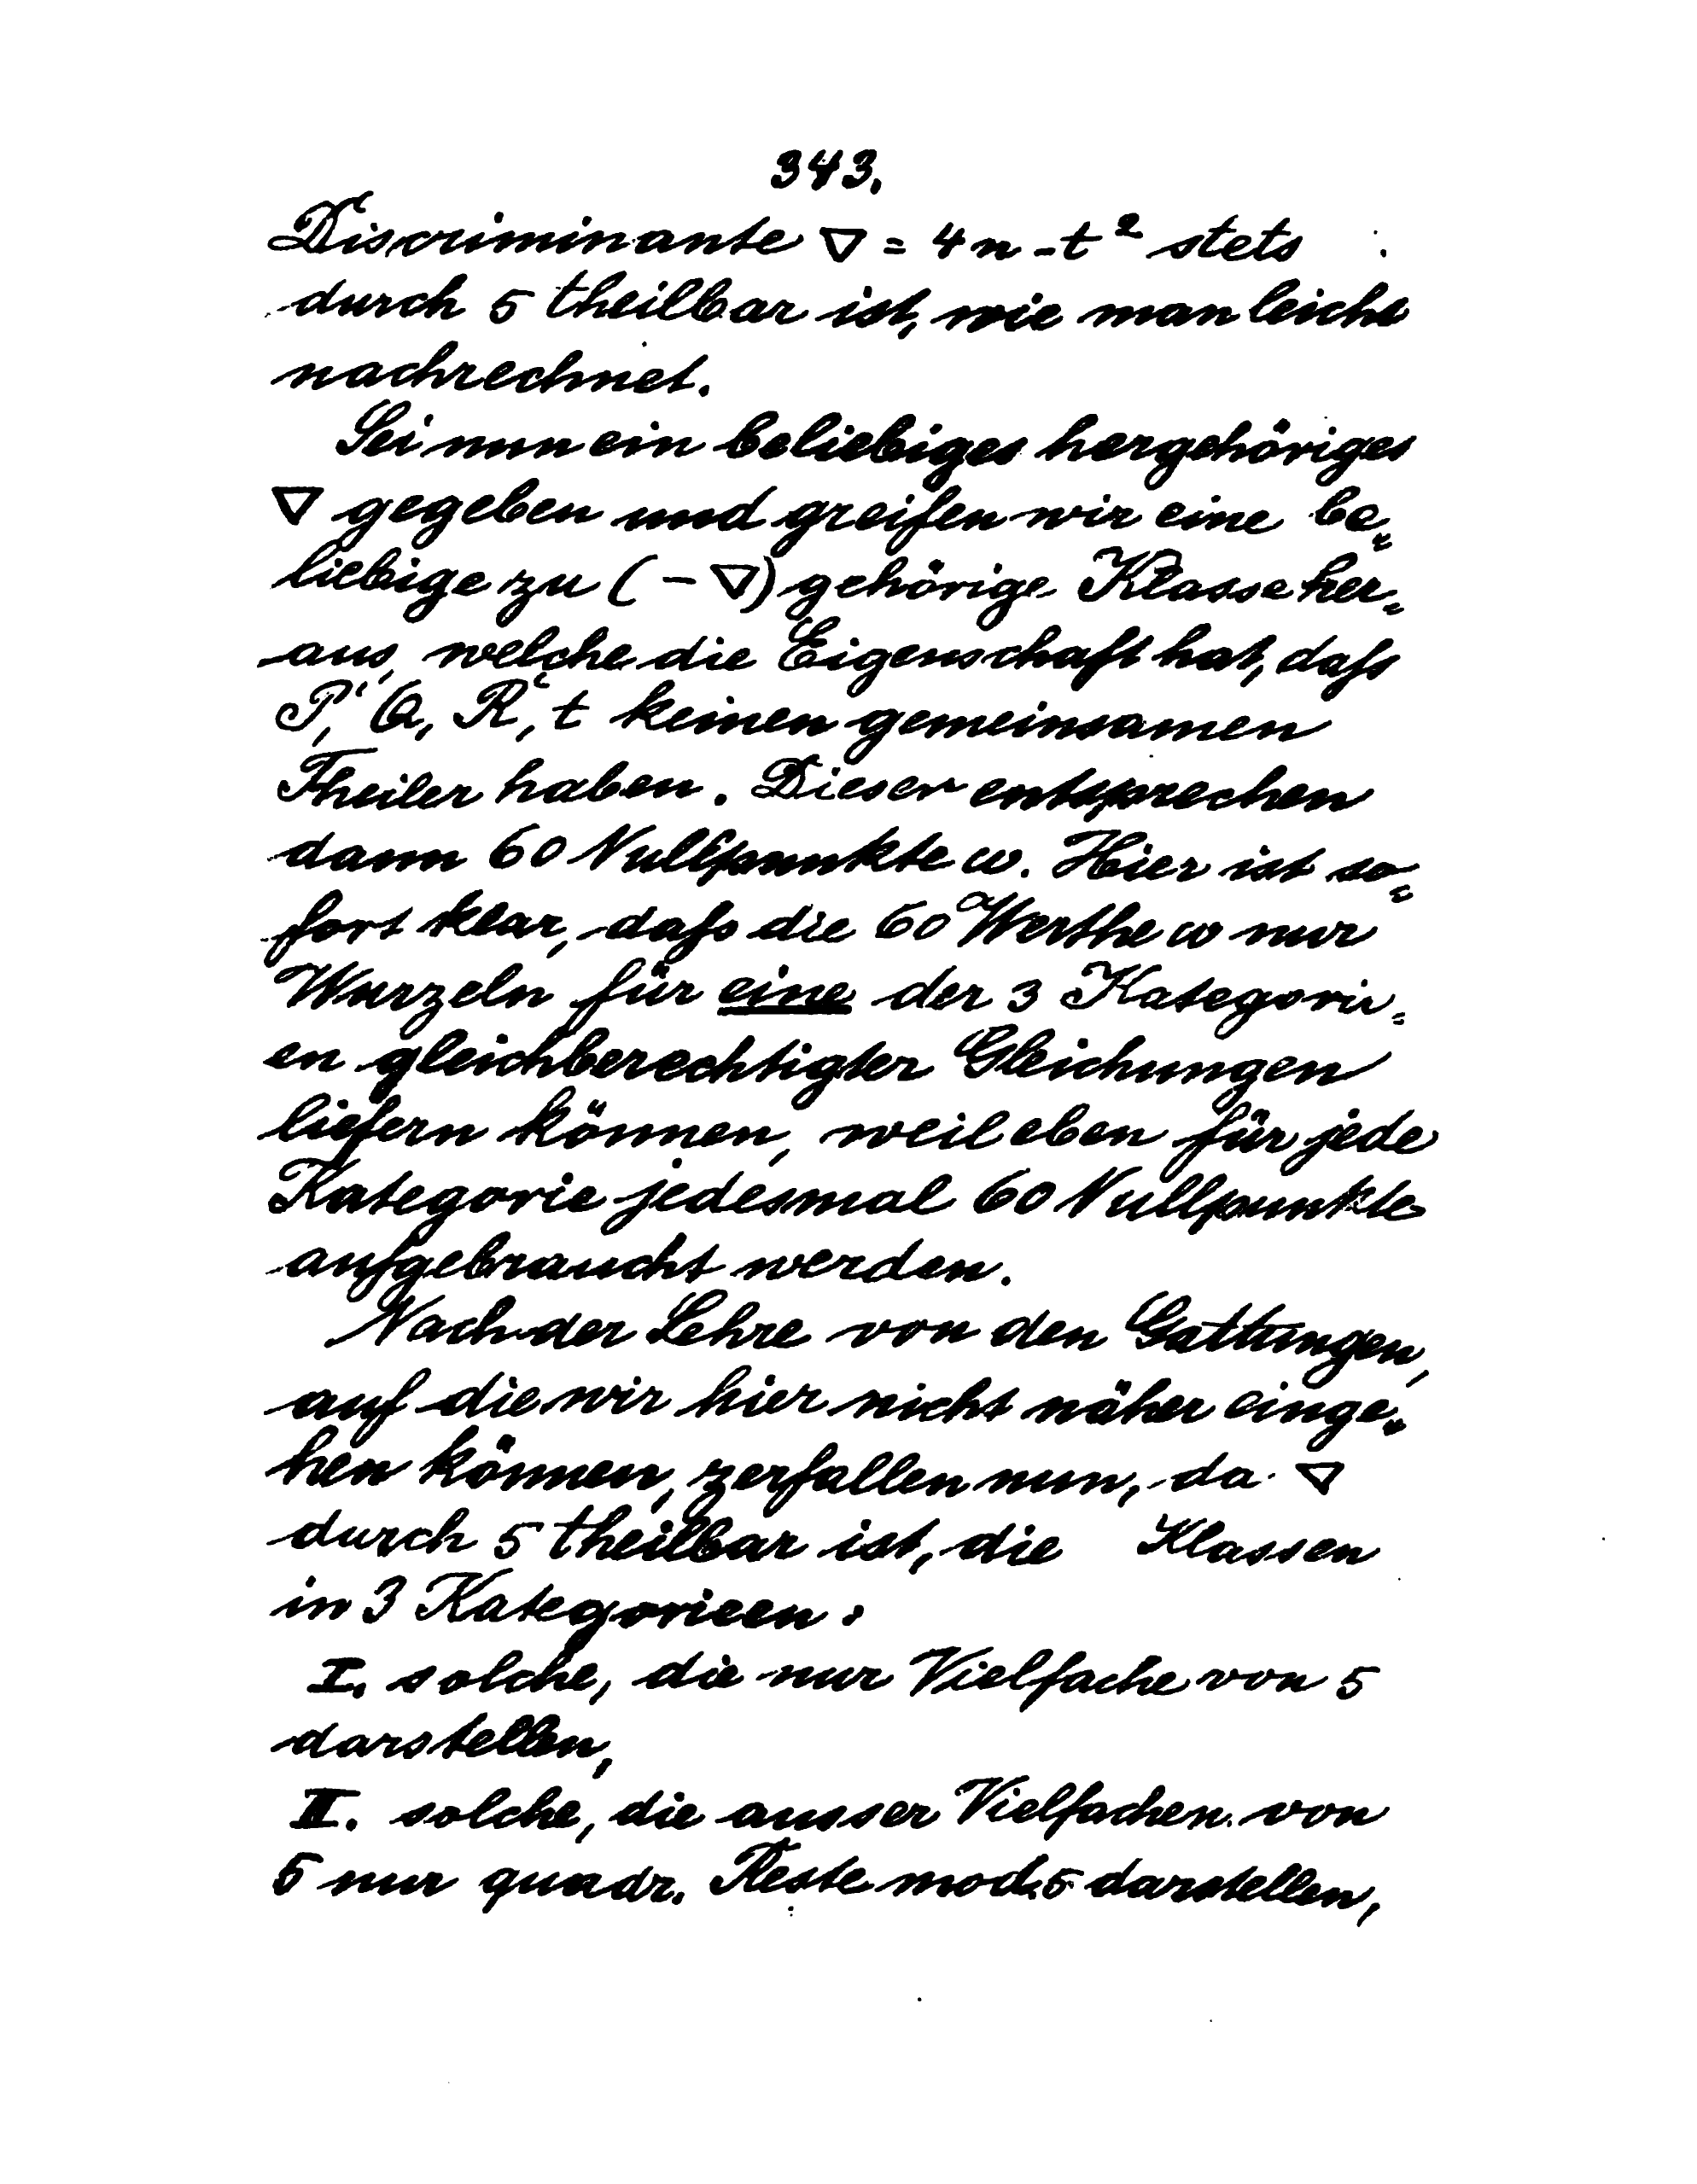 343.
Discriminante ∇ = 4n - t² stets
durch 5 theilbar ist, wie man leicht
nachrechnet.
Sei nun ein beliebiges hergehöriges
∇ gegeben und greifen wir eine be=
liebige zu (-∇) gehörige Klasse her=
aus, welche die Eigenschaft hat, daſs
P', Q, R', t keinen gemeinsamen
Theiler haben. Dieser entsprechen
dann 60 Nullpunkte ω. Hier ist so=
fort klar, daſs die 60 Werthe ω nur
Wurzeln für eine der 3 Kategorie=
en gleichberechtigter Gleichungen
liefern können, weil eben für jede
Kategorie jedesmal 60 Nullpunkte
aufgebraucht werden.
Nach der Lehre von den Gattungen,
auf die wir hier nicht näher einge=
hen können, zerfallen nun, da ∇
durch 5 theilbar ist, die Klassen
in 3 Kategorieen:
I. solche, die nur Vielfache von 5
darstellen,
II. solche, die ausser Vielfachen von
5 nur quadr. Reste mod. 5 darstellen,